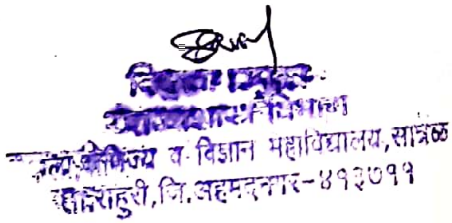 विभाग प्रमुख
विभाग
कला,वाणिज्य व विज्ञान महाविद्यालय,सात्रळ
ता.राहुरी,जि.अहमदनगर-४१३७११